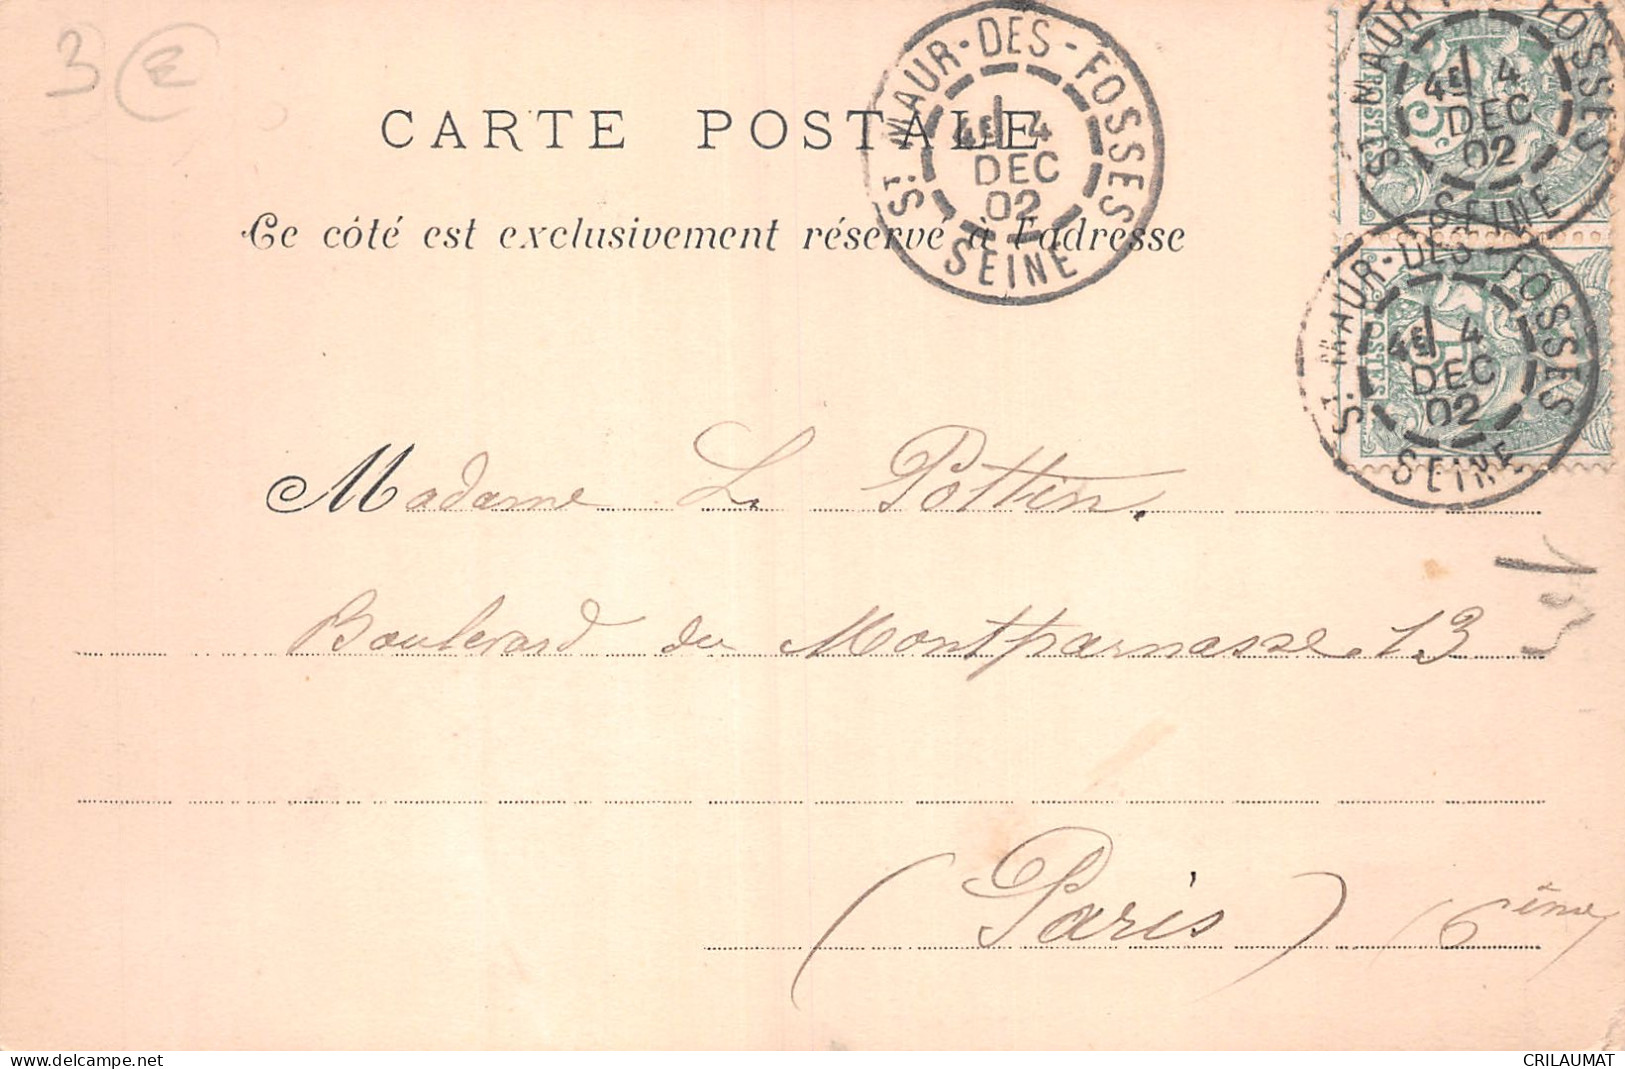 3 €
CARTE POSTALE
Ce côté est exclusivement réservé à l'adresse
ST MAUR-DES-FOSSES
4E 4
DEC
02
SEINE
ST MAUR-DES-FOSSES
4E 4
DEC
02
SEINE
POSTES
5
ST MAUR-DES-FOSSES
4E 4
DEC
02
SEINE
POSTES
5
Madame Le Pottin.
Boulevard du Montparnasse. 13
(Paris) (6ème)
delcampe.net
CRILAUMAT